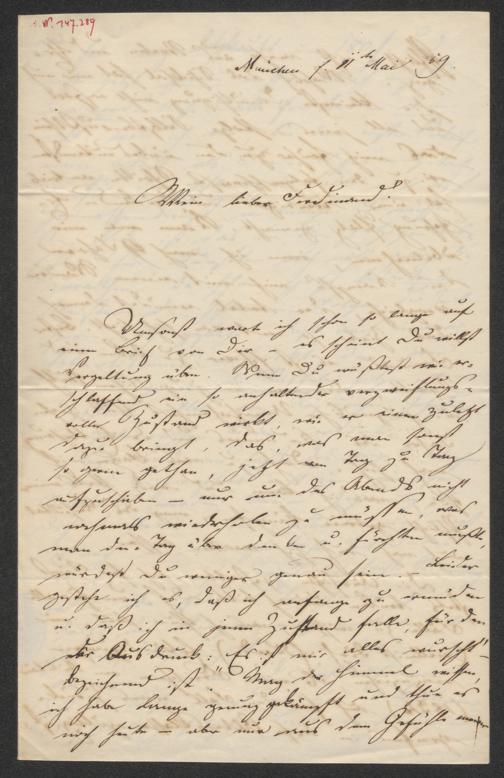 I. N. 147.289
München d 11ten Mai 69.
Mein lieber Ferdinand!
Umsonst warte ich schon so lange auf
einen Brief von Dir – es scheint Du willst
Vergeltung üben. Wenn Du wüßtest wie er-
schlaffend ein so anhaltender verzweiflungs-
voller Zustand wirkt, wie er einen zuletzt
dazu bringt, das, was man sonst
so gern gethan, jetzt von Tag zu Tag
aufzuschieben – nur um des Abends nicht
nochmals wiederholen zu müssen, was
man den Tag über denken u. fürchten mußte,
würdest Du weniger genau sein. – Leider
gestehe ich es, daß ich anfange zu ermüden
u. daß ich in jenen Zustand falle, für den
der Ausdruck: "Es ist mir alles wurscht"
bezeichnend ist. Mag der Himmel wissen,
ich habe lange genug gekämpft und thue es
noch heute – aber nur aus dem Gefühle